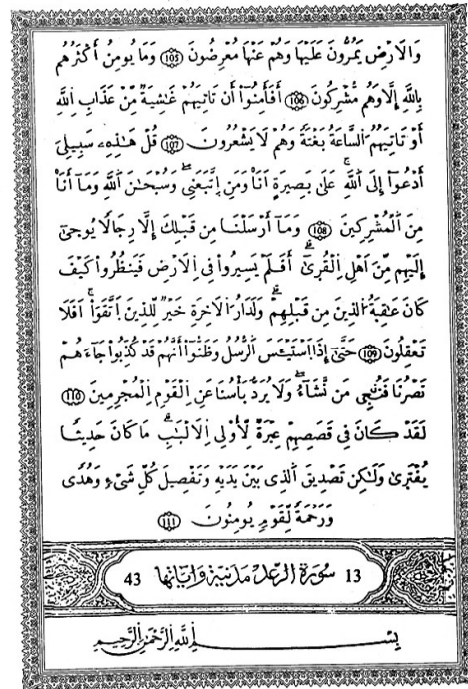 وَالَارْضِ يَمُرُّونَ عَلَيْهَا وَهُمْ عَنْهَا مُعْرِضُونَ 105 وَمَا يُومِنُ أَكْثَرُهُم
بِاللَّهِ إِلَّا وَهُم مُّشْرِكُونَ 106 أَفَأَمِنُوٓا أَن تَاتِيَهُمْ غَٰشِيَةٌ مِّنْ عَذَابِ اِللَّهِ
أَوْ تَاتِيَهُمُ السَّاعَةُ بَغْتَةً وَهُمْ لَا يَشْعُرُونَ 107 قُلْ هَٰذِهِۦ سَبِيلِيَ
أَدْعُوٓا إِلَى اَللَّهِ عَلَىٰ بَصِيرَةٍ اَنَا وَمَنِ اِتَّبَعَنِي وَسُبْحَٰنَ اَللَّهِ وَمَآ أَنَا
مِنَ اَلْمُشْرِكِينَ 108 وَمَآ أَرْسَلْنَا مِن قَبْلِكَ إِلَّا رِجَالًا يُوحَىٰٓ
إِلَيْهِم مِّنَ اَهْلِ اِلْقُرَىٰٓ أَفَلَمْ يَسِيرُوا فِي اِلَارْضِ فَيَنظُرُوا كَيْفَ
كَانَ عَٰقِبَةُ اُلذِينَ مِن قَبْلِهِمْ وَلَدَارُ اُلَاخِرَةِ خَيْرٌ لِّلذِينَ اَتَّقَوَا اَفَلَا
تَعْقِلُونَ 109 حَتَّىٰٓ إِذَا اَسْتَيْـَٔسَ اَلرُّسُلُ وَظَنُّوٓا أَنَّهُمْ قَدْ كُذِّبُوا جَآءَهُمْ
نَصْرُنَا فَنُۨجِي مَن نَّشَآءُ وَلَا يُرَدُّ بَأْسُنَا عَنِ اِلْقَوْمِ اِلْمُجْرِمِينَ 110
لَقَدْ كَانَ فِي قَصَصِهِمْ عِبْرَةٌ لِّأُولِي اِلَالْبَٰبِ مَا كَانَ حَدِيثًا
يُفْتَرَىٰ وَلَٰكِن تَصْدِيقَ اَلذِي بَيْنَ يَدَيْهِ وَتَفْصِيلَ كُلِّ شَيْءٍ وَهُدًى
وَرَحْمَةً لِّقَوْمٍ يُومِنُونَ 111
13 سُورَةُ الرَّعْدِ مَدَنِيَّةٌ وَءَايَاتُهَا 43
بِسْمِ اِللَّهِ اِلرَّحْمَٰنِ اِلرَّحِيمِ